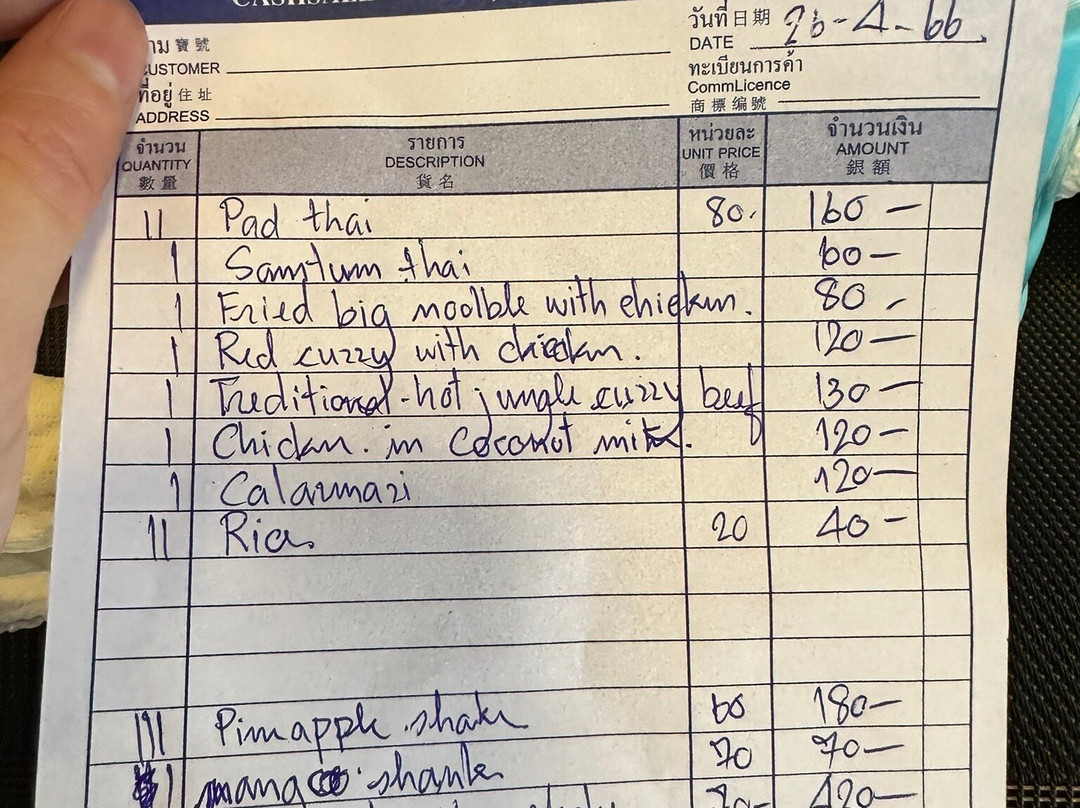 วันที่ 日期 26-4-66.
DATE
寶號
CUSTOMER
ทะเบียนการค้า
CommLicence
商標編號
ที่อยู่ 住址
ADDRESS
จำนวน รายการ หน่วยละ จำนวนเงิน
QUANTITY DESCRIPTION UNIT PRICE AMOUNT
數量 貨名 價格 銀額
11 Pad thai 80. 160 —
1 Samtum thai 60 —
1 Fried big moolble with chickun. 80 -
1 Red curry with chicken. 120 —
1 Treditional-hot jungle curry beef 130 —
1 Chickn. in Coconot milk. 120 —
1 Calarmari 120 —
11 Rice. 20 40 —
111 Pimapple shake 60 180 —
1 mango shanke 70 70 —
420 —